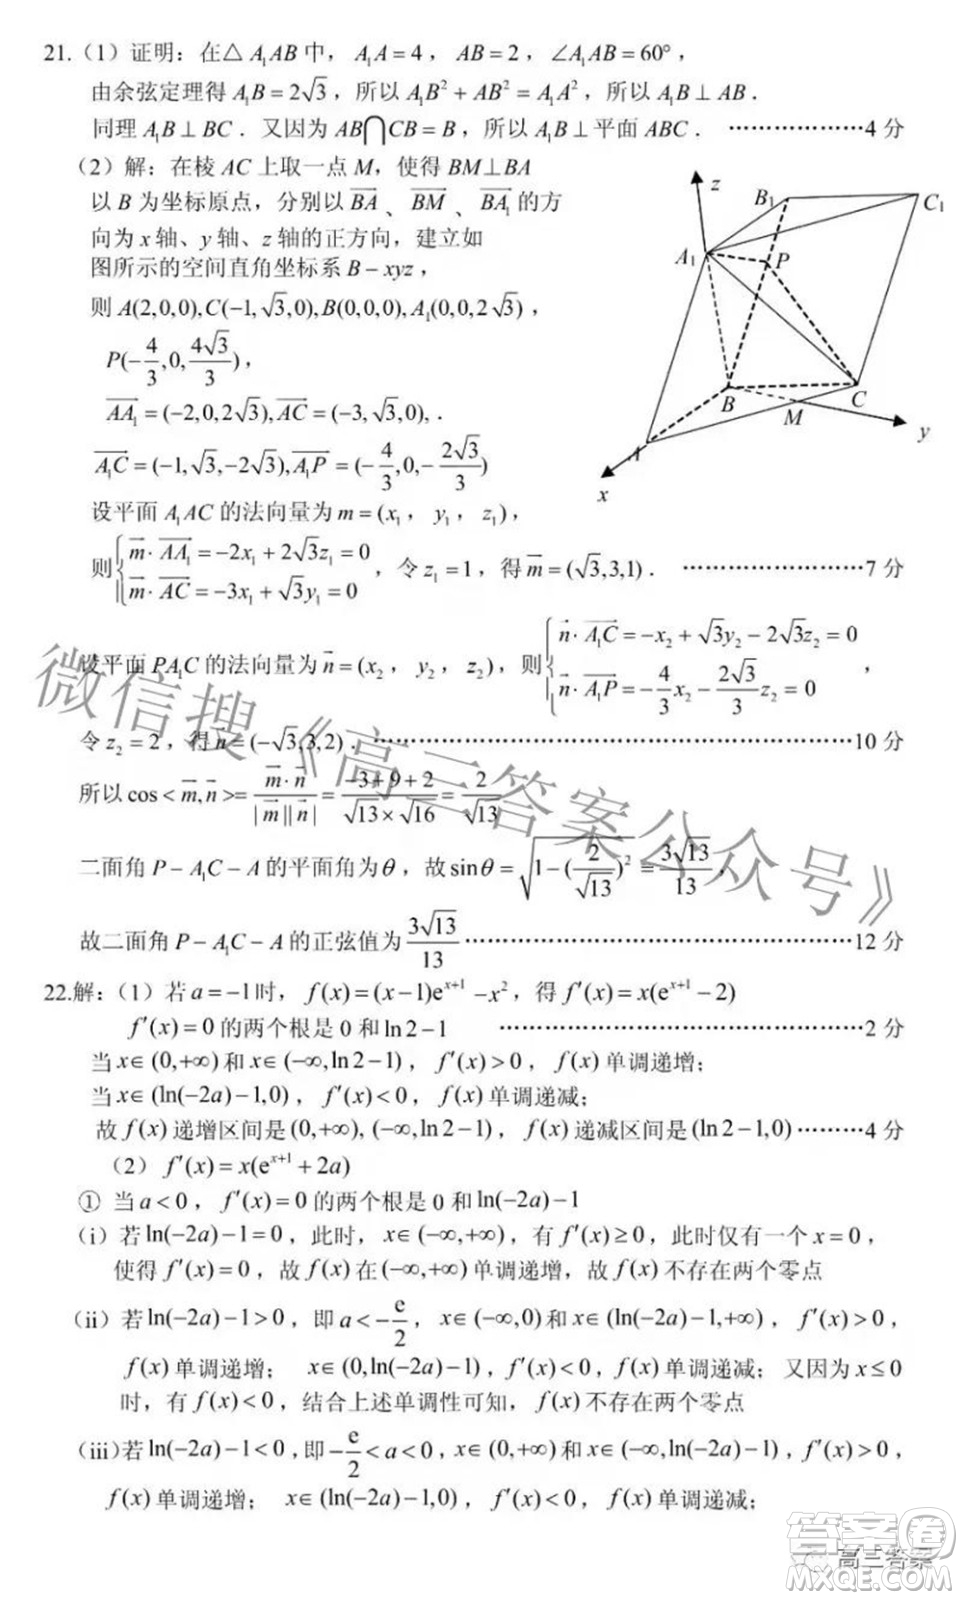 21.（1）证明：在△ A₁AB 中， A₁A = 4 ， AB = 2 ，∠A₁AB = 60° ，
由余弦定理得 A₁B = 2√3 ，所以 A₁B² + AB² = A₁A² ，所以 A₁B ⊥ AB ．
同理 A₁B ⊥ BC ．又因为 AB⋂CB = B ，所以 A₁B ⊥ 平面 ABC ． …………………4 分
（2）解：在棱 AC 上取一点 M，使得 BM ⊥ BA
以 B 为坐标原点，分别以 \overrightarrow{BA}、\overrightarrow{BM}、\overrightarrow{BA₁} 的方
向为 x 轴、y 轴、z 轴的正方向，建立如
图所示的空间直角坐标系 B − xyz ，
则 A(2,0,0), C(−1,√3,0), B(0,0,0), A₁(0,0,2√3) ，
P(−4/3,0,4√3/3) ，
\overrightarrow{AA₁} = (−2,0,2√3), \overrightarrow{AC} = (−3,√3,0), ．
\overrightarrow{A₁C} = (−1,√3,−2√3), \overrightarrow{A₁P} = (−4/3,0,−2√3/3)
z
B₁
C₁
A₁
P
B
C
M
y
A
x
设平面 A₁AC 的法向量为 m = (x₁ ， y₁ ， z₁) ，
则 { \overrightarrow{m} · \overrightarrow{AA₁} = −2x₁ + 2√3z₁ = 0
\overrightarrow{m} · \overrightarrow{AC} = −3x₁ + √3y₁ = 0 ，令 z₁ = 1 ，得 \overrightarrow{m} = (√3,3,1) ． ……………………7 分
设平面 PA₁C 的法向量为 \overrightarrow{n} = (x₂ ， y₂ ， z₂) ，则 { \overrightarrow{n} · \overrightarrow{A₁C} = −x₂ + √3y₂ − 2√3z₂ = 0
\overrightarrow{n} · \overrightarrow{A₁P} = −4/3 x₂ − 2√3/3 z₂ = 0 ，
令 z₂ = 2 ，得 \overrightarrow{n} = (−√3,3,2) ． ……………………………………10 分
所以 cos < \overrightarrow{m}, \overrightarrow{n} >= \overrightarrow{m} · \overrightarrow{n} / | \overrightarrow{m} || \overrightarrow{n} | = −3+9+2 / √13 × √16 = 2/√13
二面角 P − A₁C − A 的平面角为 θ ，故 sin θ = √(1 − (2/√13)²) = 3√13/13 ，
故二面角 P − A₁C − A 的正弦值为 3√13/13 ……………………………………12 分
22.解：（1）若 a = −1 时， f(x) = (x−1)e^{x+1} − x² ，得 f′(x) = x(e^{x+1} − 2)
f′(x) = 0 的两个根是 0 和 ln 2 − 1 ……………………………………2 分
当 x∈ (0,+∞) 和 x∈ (−∞, ln 2 − 1) ， f′(x) > 0 ， f(x) 单调递增；
当 x∈ (ln(−2a) − 1,0) ， f′(x) < 0 ， f(x) 单调递减；
故 f(x) 递增区间是 (0,+∞), (−∞, ln 2 − 1) ， f(x) 递减区间是 (ln 2 − 1,0) ………4 分
（2） f′(x) = x(e^{x+1} + 2a)
① 当 a < 0 ， f′(x) = 0 的两个根是 0 和 ln(−2a) − 1
（i）若 ln(−2a) − 1 = 0 ，此时， x∈ (−∞,+∞)，有 f′(x) ≥ 0 ，此时仅有一个 x = 0 ，
使得 f′(x) = 0 ，故 f(x) 在 (−∞,+∞) 单调递增，故 f(x) 不存在两个零点
（ii）若 ln(−2a) − 1 > 0 ，即 a < −e/2 ， x∈ (−∞,0) 和 x∈ (ln(−2a) − 1,+∞) ， f′(x) > 0 ，
f(x) 单调递增； x∈ (0, ln(−2a) − 1) ，f′(x) < 0 ，f(x) 单调递减； 又因为 x ≤ 0
时，有 f(x) < 0 ，结合上述单调性可知， f(x) 不存在两个零点
（iii）若 ln(−2a) − 1 < 0 ，即 −e/2 < a < 0 ，x∈ (0,+∞) 和 x∈ (−∞, ln(−2a) − 1) ，f′(x) > 0 ，
f(x) 单调递增； x∈ (ln(−2a) − 1,0) ， f′(x) < 0 ， f(x) 单调递减；
微信搜《高三答案公众号》
高三答案
答案圈
MXQE.COM